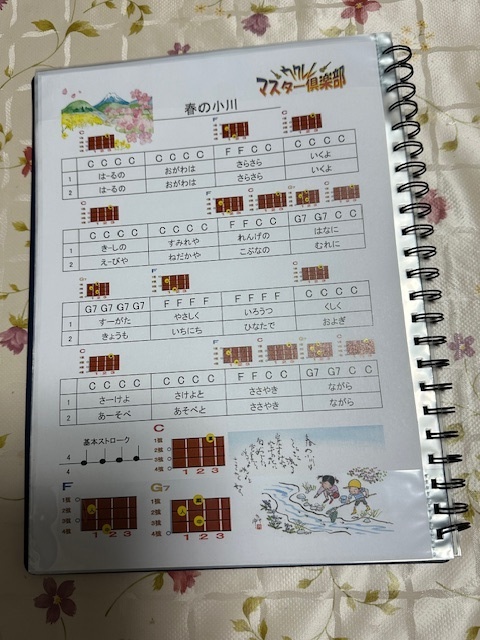 ウクレレ
マスター倶楽部
春の小川
C C C C C C C C F F C C C C C C
1 はーるの おがわは さらさら いくよ
2 はーるの おがわは さらさら いくよ
C C C C C C C C F F C C G7 G7 C C
1 きーしの すみれや れんげの はなに
2 えーびや ねだかや こぶなの むれに
G7 G7 G7 G7 F F F F F F F F C C C C
1 すーがた やさしく いろうつ くしく
2 きょうも いちにち ひなたで およぎ
C C C C C C C C F F C C G7 G7 C C
1 さーけよ さけよと ささやき ながら
2 あーそべ あそべと ささやき ながら
基本ストローク
4
4
C
1弦
2弦
3弦
4弦
1 2 3
F
1弦
2弦
3弦
4弦
1 2 3
G7
1弦
2弦
3弦
4弦
1 2 3
春の小川